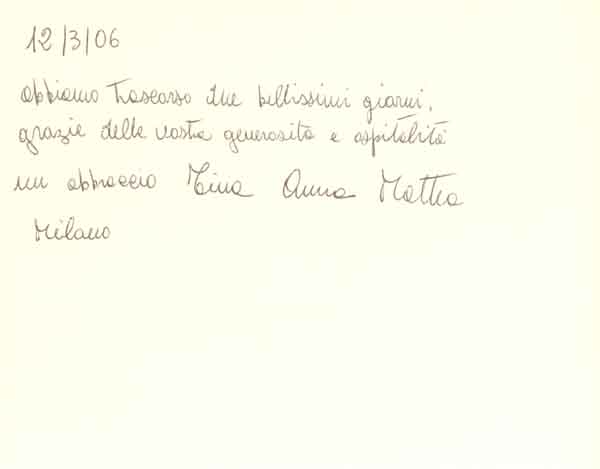 12/3/06
abbiamo trascorso due bellissimi giorni,
grazie della vostra generosità e ospitalità
un abbraccio Tina Anna Mattea
Milano